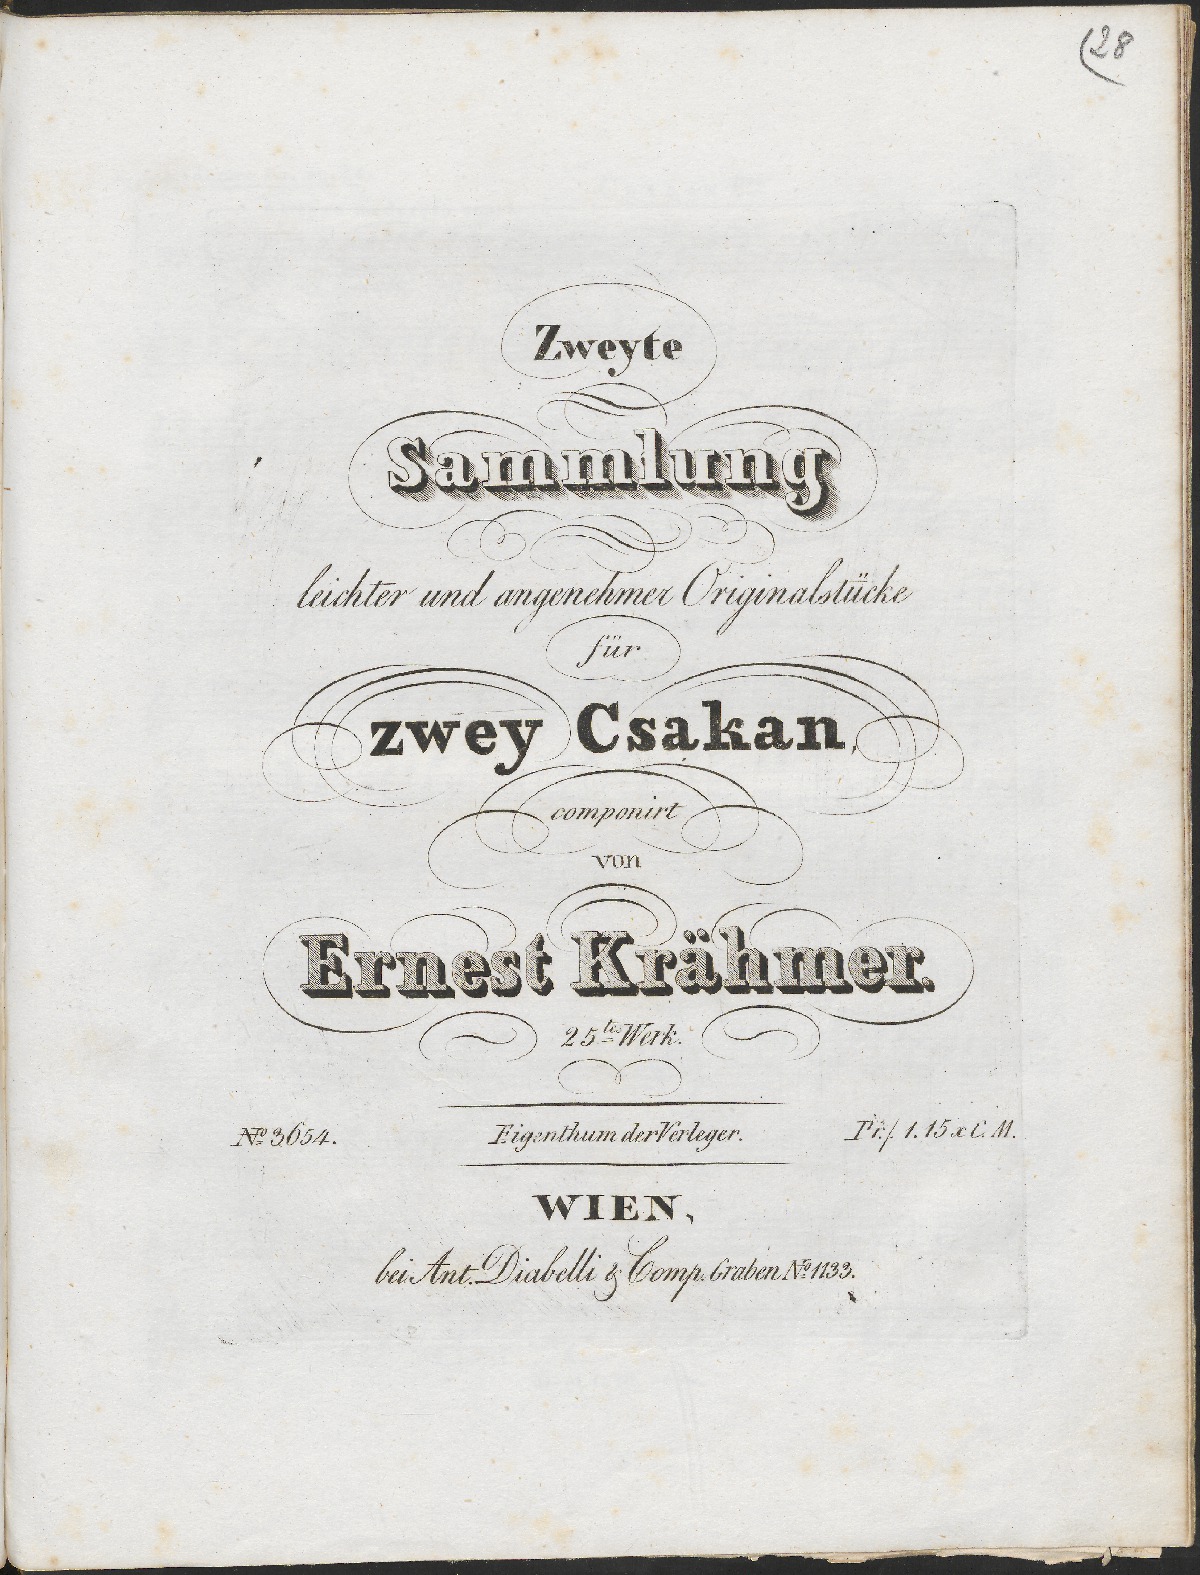 28
Zweyte
Sammlung
leichter und angenehmer Originalstücke
für
zwey Csakan,
componirt
von
Ernest Krähmer.
25tes Werk.
No 3654. Eigenthum der Verleger. Pr. f 1.15 x C. M.
WIEN,
bei Ant. Diabelli & Comp. Graben No 1133.